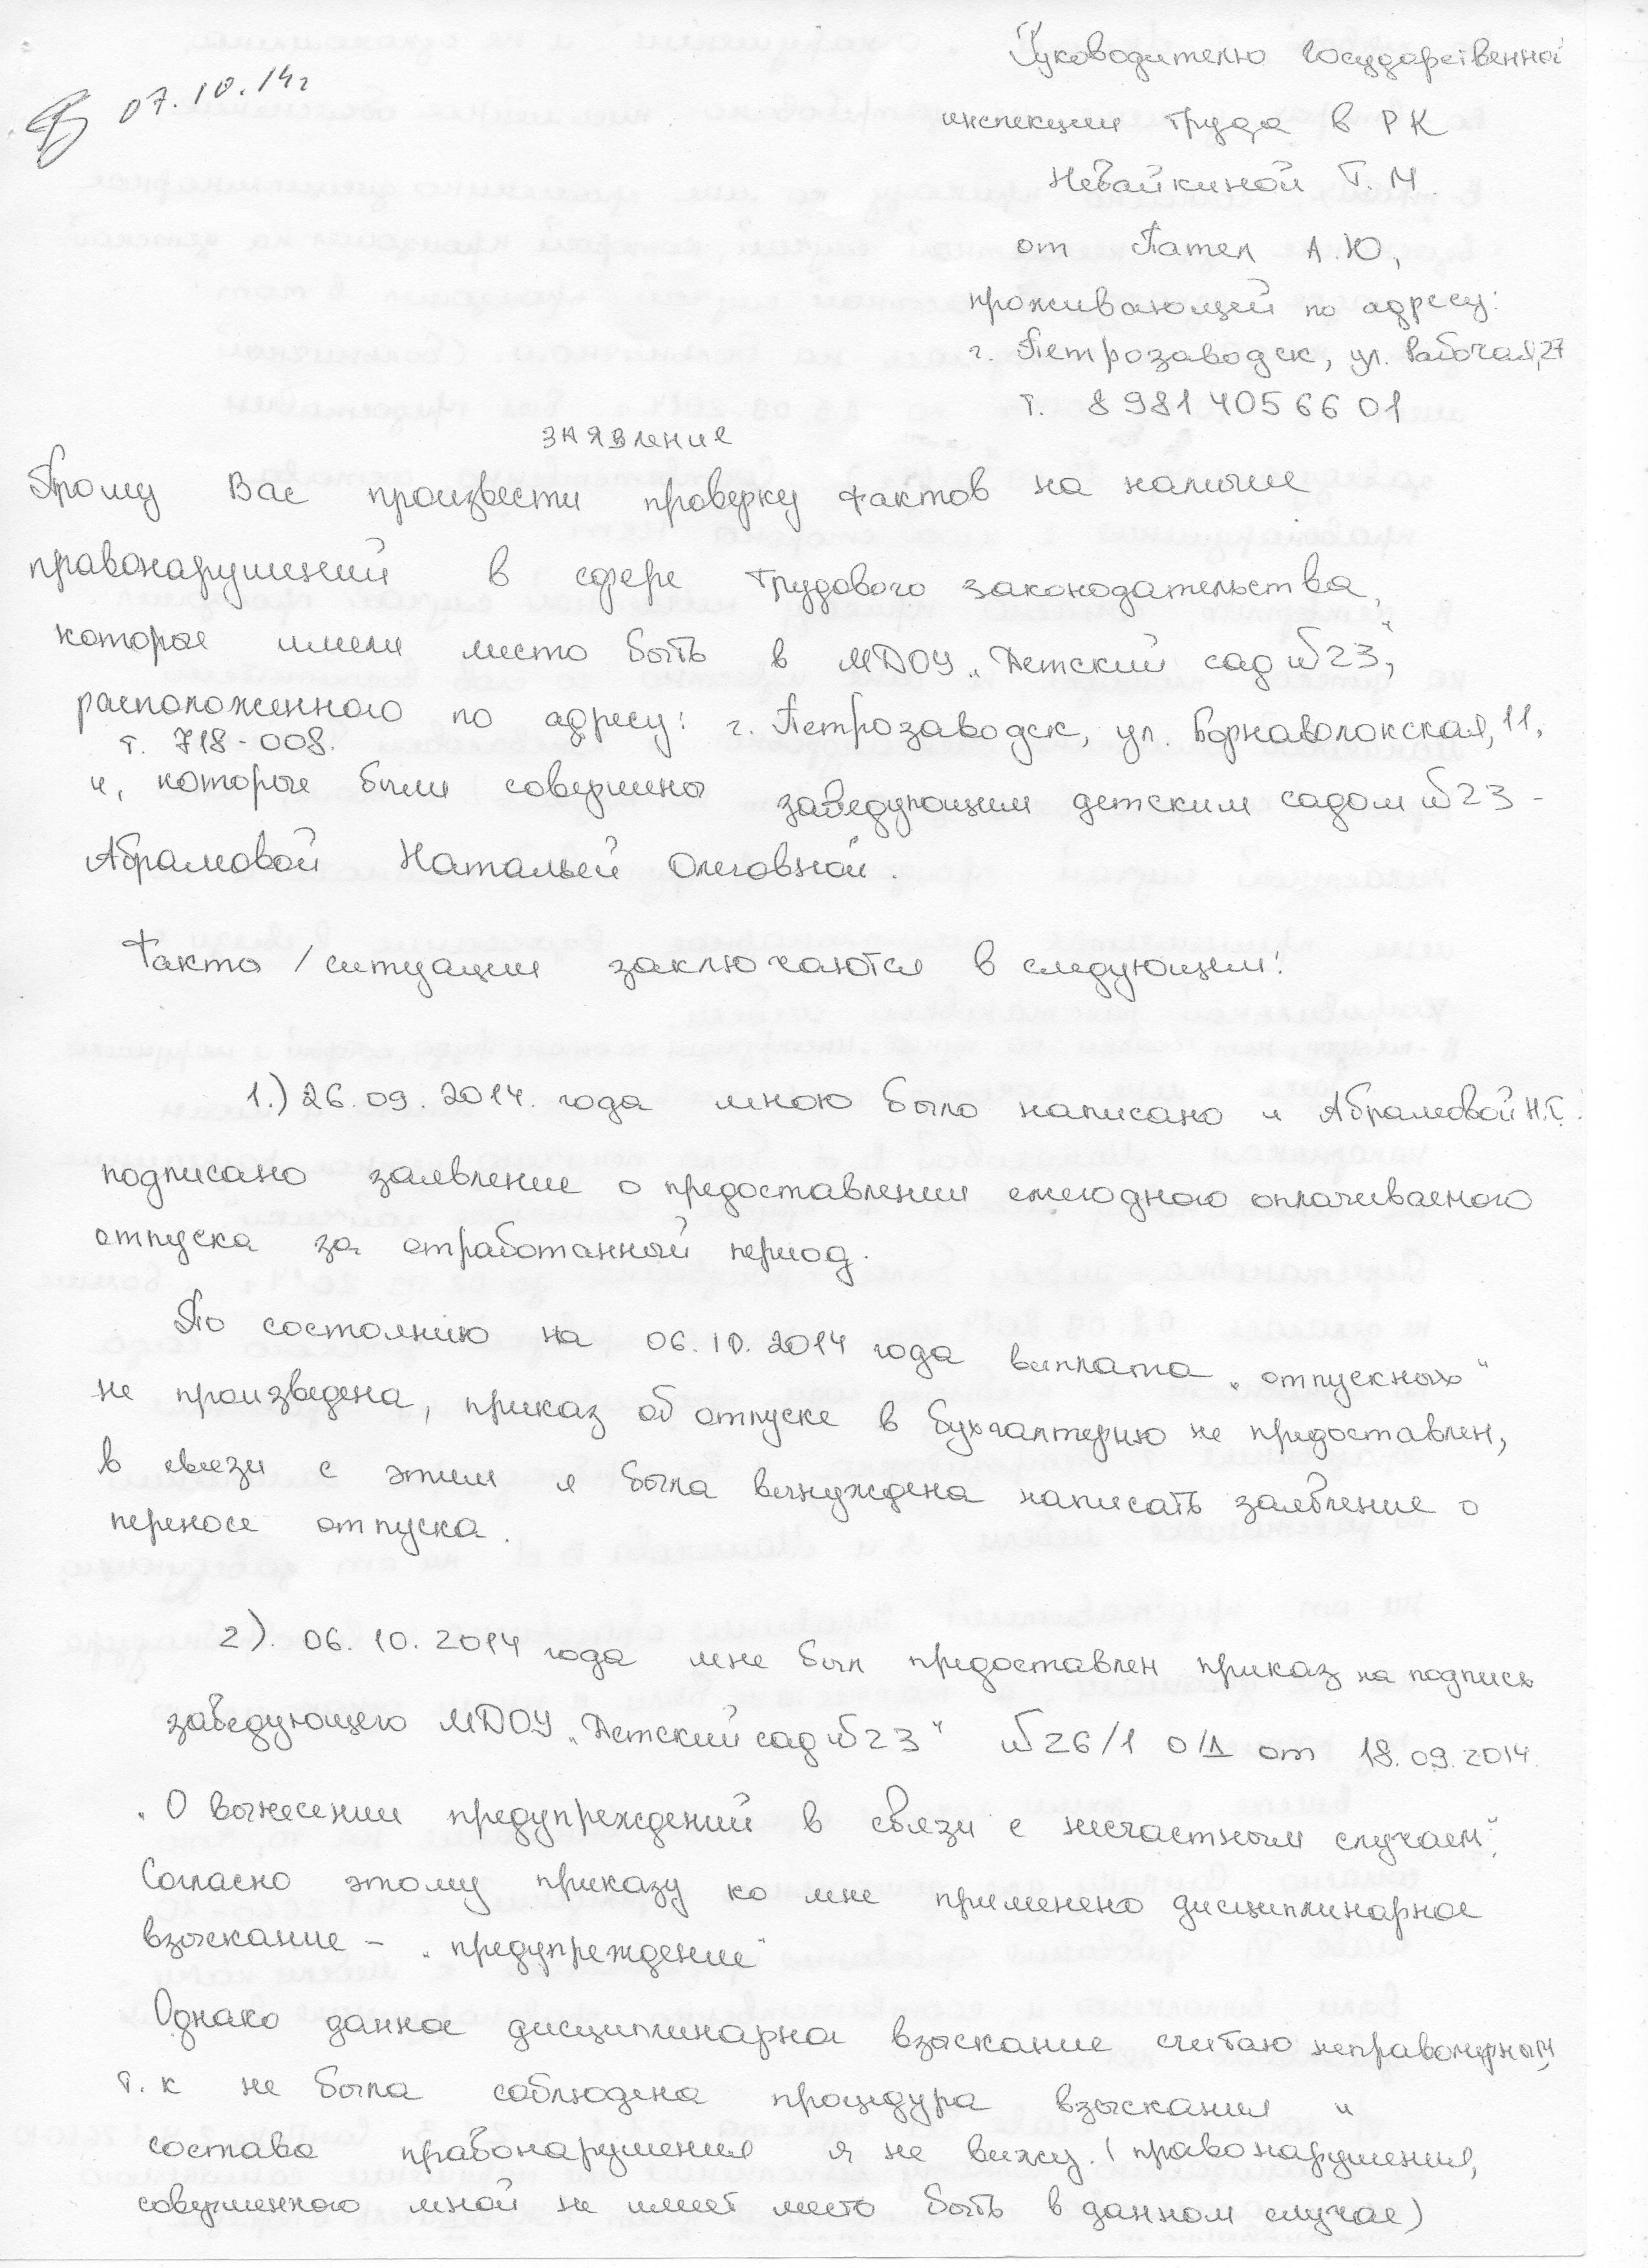 07.10.14г
Руководителю Государственной
инспекции труда в РК
Невайкиной Т.М.
от Пател А.Ю,
проживающей по адресу:
г. Петрозаводск, ул. Рабочая,27
т. 89814056601
заявление
Прошу Вас произвести проверку фактов на наличие
правонарушений в сфере трудового законодательства,
которые имели место быть в МДОУ „Детский сад №23",
расположенного по адресу: г. Петрозаводск, ул. Варнаволокская, 11,
т. 718-008.
и, которые были совершены заведующим детским садом №23 -
Абрамовой Натальей Олеговной.
Факты / ситуации заключаются в следующем:
1.) 26.09.2014. года мною было написано и Абрамовой
подписано заявление о предоставлении ежегодного оплачиваемого
отпуска за отработанный период.
По состоянию на 06.10.2014 года выплата „отпускных"
не произведена, приказ об отпуске в бухгалтерию не предоставлен,
в связи с этим я была вынуждена написать заявление о
переносе отпуска.
2). 06.10.2014 года мне был предоставлен приказ на подпись
заведующего МДОУ „Детский сад №23" №26/1 о/д от 18.09.2014.
„О вынесении предупреждений в связи с несчастным случаем".
Согласно этому приказу ко мне применено дисциплинарное
взыскание - „предупреждение"
Однако данное дисциплинарное взыскание считаю неправомерным,
т.к не была соблюдена процедура взыскания и
состава правонарушения я не вижу. (правонарушения,
совершенного мной не имеет место быть в данном случае)